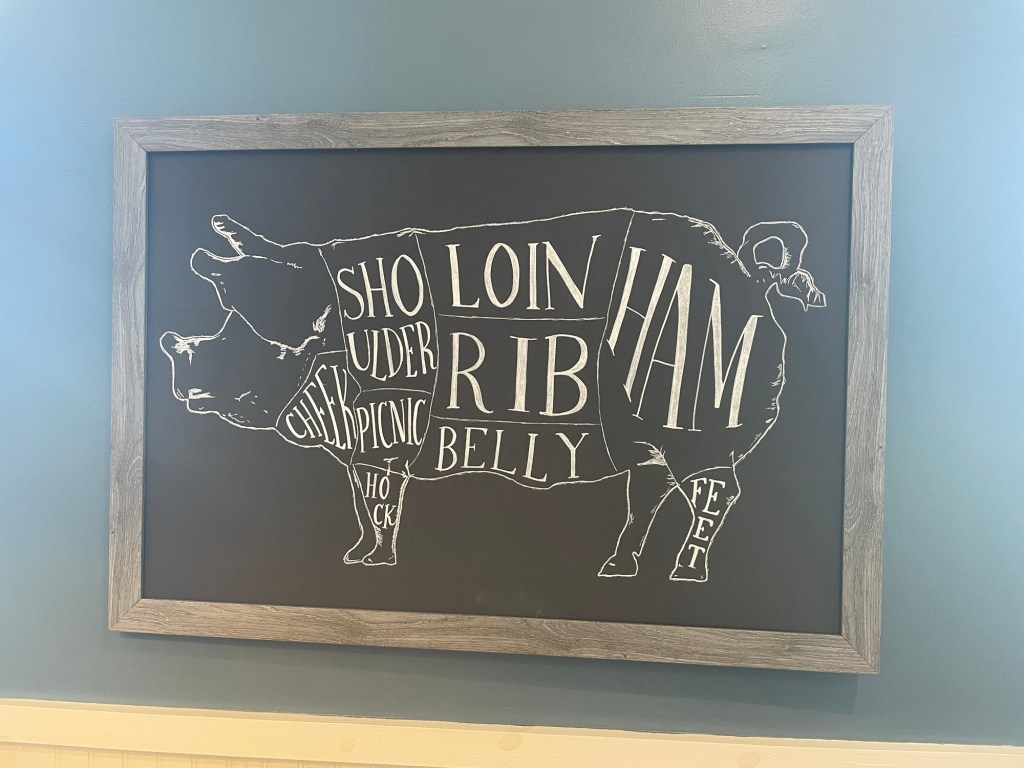 SHO
ULDER
LOIN
HAM
RIB
CHEEK
PICNIC
BELLY
HO
CK
FEET